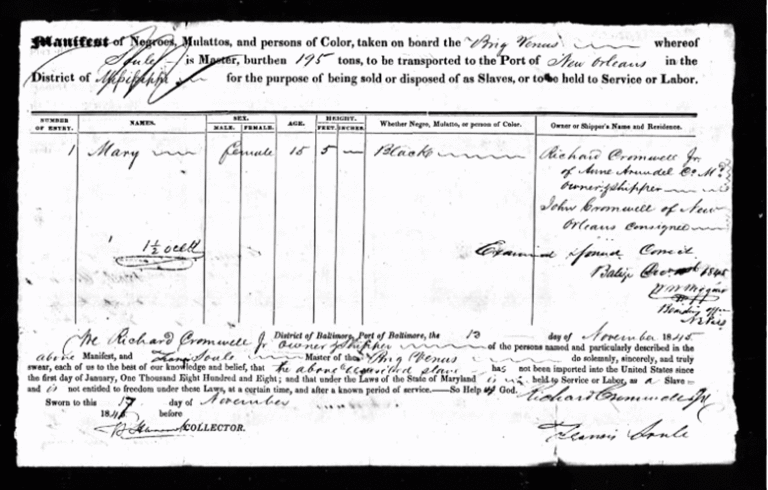 Manifest of Negroes, Mulattos, and persons of Color, taken on board the Brig Venus whereof
Soule is Master, burthen 195 tons, to be transported to the Port of New Orleans in the
District of Mississippi for the purpose of being sold or disposed of as Slaves, or to be held to Service or Labor.
NUMBER OF ENTRY. NAMES. SEX. MALE. FEMALE. AGE. HEIGHT. FEET. INCHES. Whether Negro, Mulatto, or person of Color. Owner or Shipper's Name and Residence.
1 Mary female 15 5 Black Richard Cromwell Jr
of Anne Arundel Co Md
owner & shipper
John Cromwell of New
Orleans consignee
Examined found Correct
1845
We Richard Cromwell Jr District of Baltimore, Port of Baltimore, the 13 day of November 1845
owner & shipper of the persons named and particularly described in the
above Manifest, and Francis Soule Master of the Brig Venus do solemnly, sincerely, and truly
swear, each of us to the best of our knowledge and belief, that the above described slave has not been imported into the United States since
the first day of January, One Thousand Eight Hundred and Eight; and that under the Laws of the State of Maryland is held to Service or Labor, as a Slave
and is not entitled to freedom under these Laws, at a certain time, and after a known period of service.—So Help us God.
Richard Cromwell Jr
Sworn to this 17 day of November
1845 before
COLLECTOR.
Francis Soule